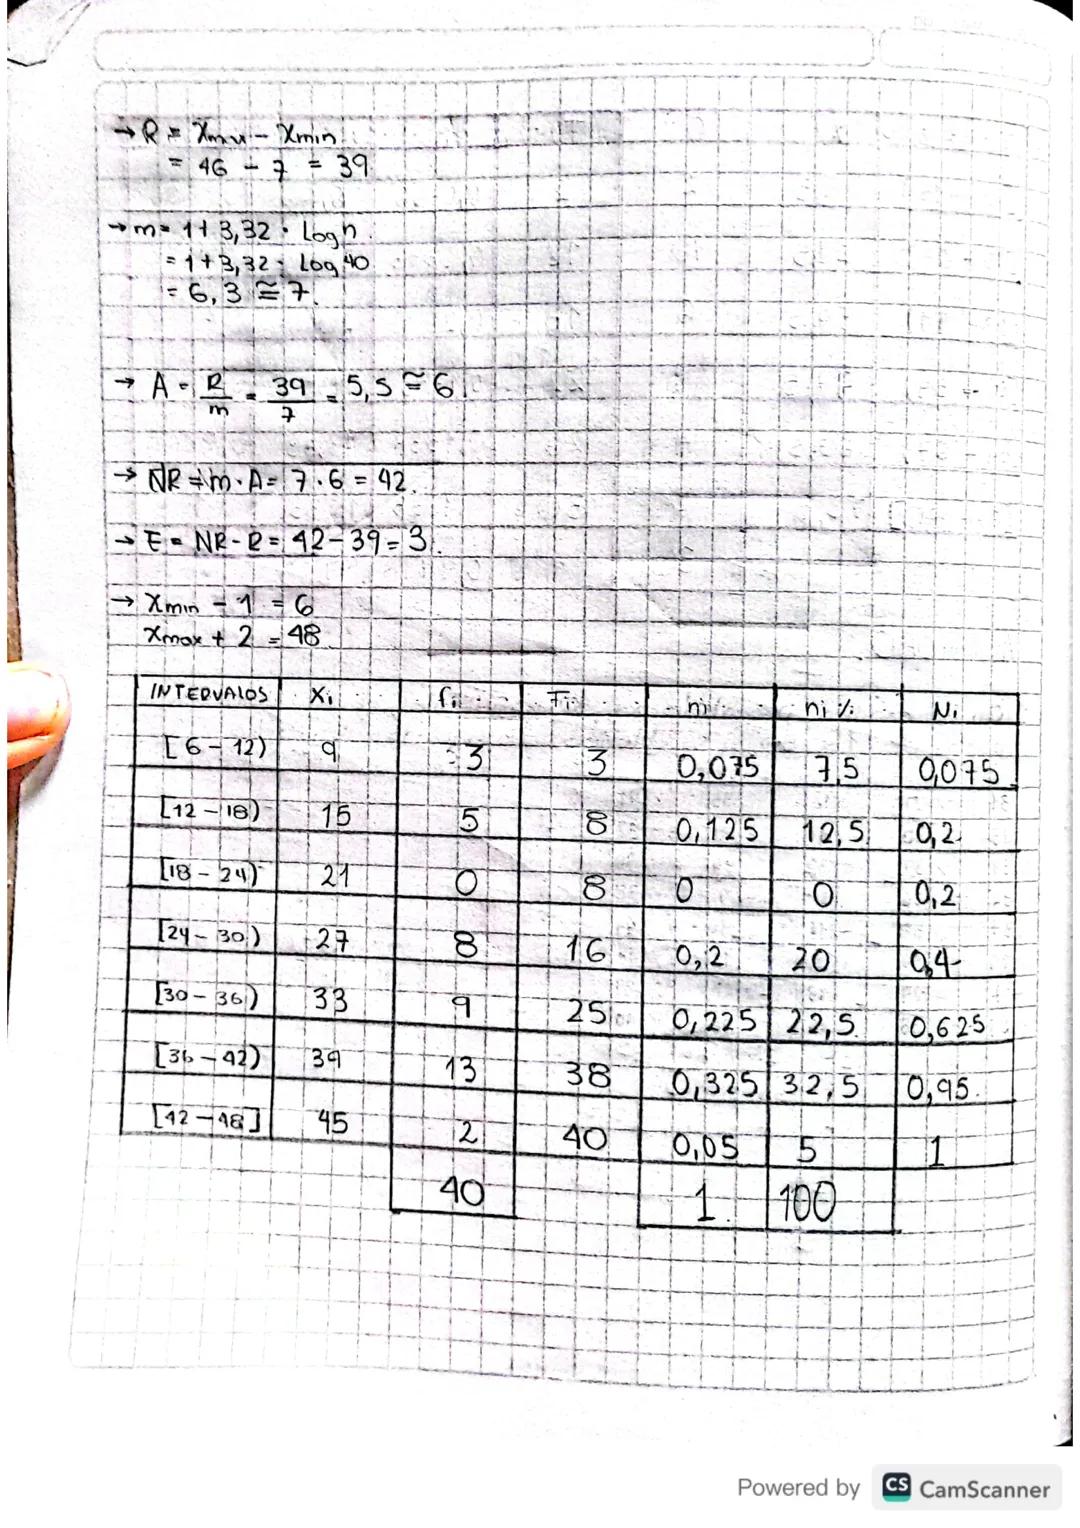 → R = Xmax - Xmin
= 46 - 7 = 39
→ m = 1 + 3,32 · Log n.
= 1 + 3,32 · Log 40
= 6,3 ≅ 7.
→ A = R/m = 39/7 = 5,5 ≅ 6.
→ NR = m · A = 7 · 6 = 42.
→ E = NR - R = 42 - 39 = 3.
→ Xmin - 1 = 6
Xmax + 2 = 48.
INTERVALOS Xi fi Fi ni ni % Ni
[6 - 12) 9 3 3 0,075 7,5 0,075
[12 - 18) 15 5 8 0,125 12,5 0,2
[18 - 24) 21 0 8 0 0 0,2
[24 - 30) 27 8 16 0,2 20 0,4
[30 - 36) 33 9 25 0,225 22,5 0,625
[36 - 42) 39 13 38 0,325 32,5 0,95
[42 - 48] 45 2 40 0,05 5 1
40 1 100
Powered by CS CamScanner